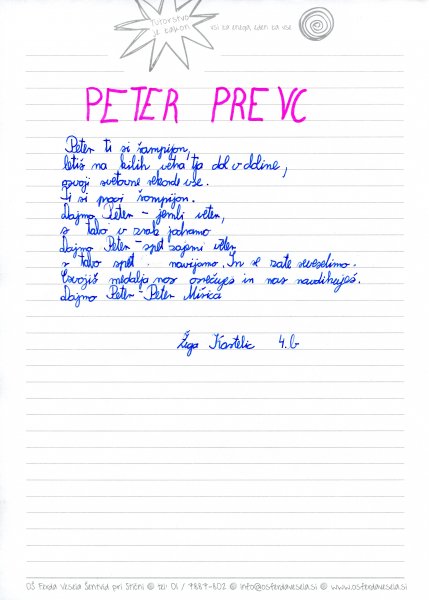 Tutorstvo
je zakon
vsi za enega, eden za vse
PETER PREVC
Peter ti si šampijon,
letiš na krilih vetra tja dol v doline,
osvoji svetovne rekorde vse.
Ti si pravi šampijon.
Dajmo Peter - jemli veter,
s tabo v zrak jadramo
Dajmo Peter - spet zajemi veter
s tabo spet navijamo. In se zate veselimo.
Osvojiš medaljo nas osrečuješ in nas navdihuješ.
Dajmo Peter - Peter
Žiga Kastelic 4.b
OŠ Ferda Vesela Šentvid pri Stični © tel: 01 / 7887-802 © info@osferdavesela.si © www.osferdavesela.si